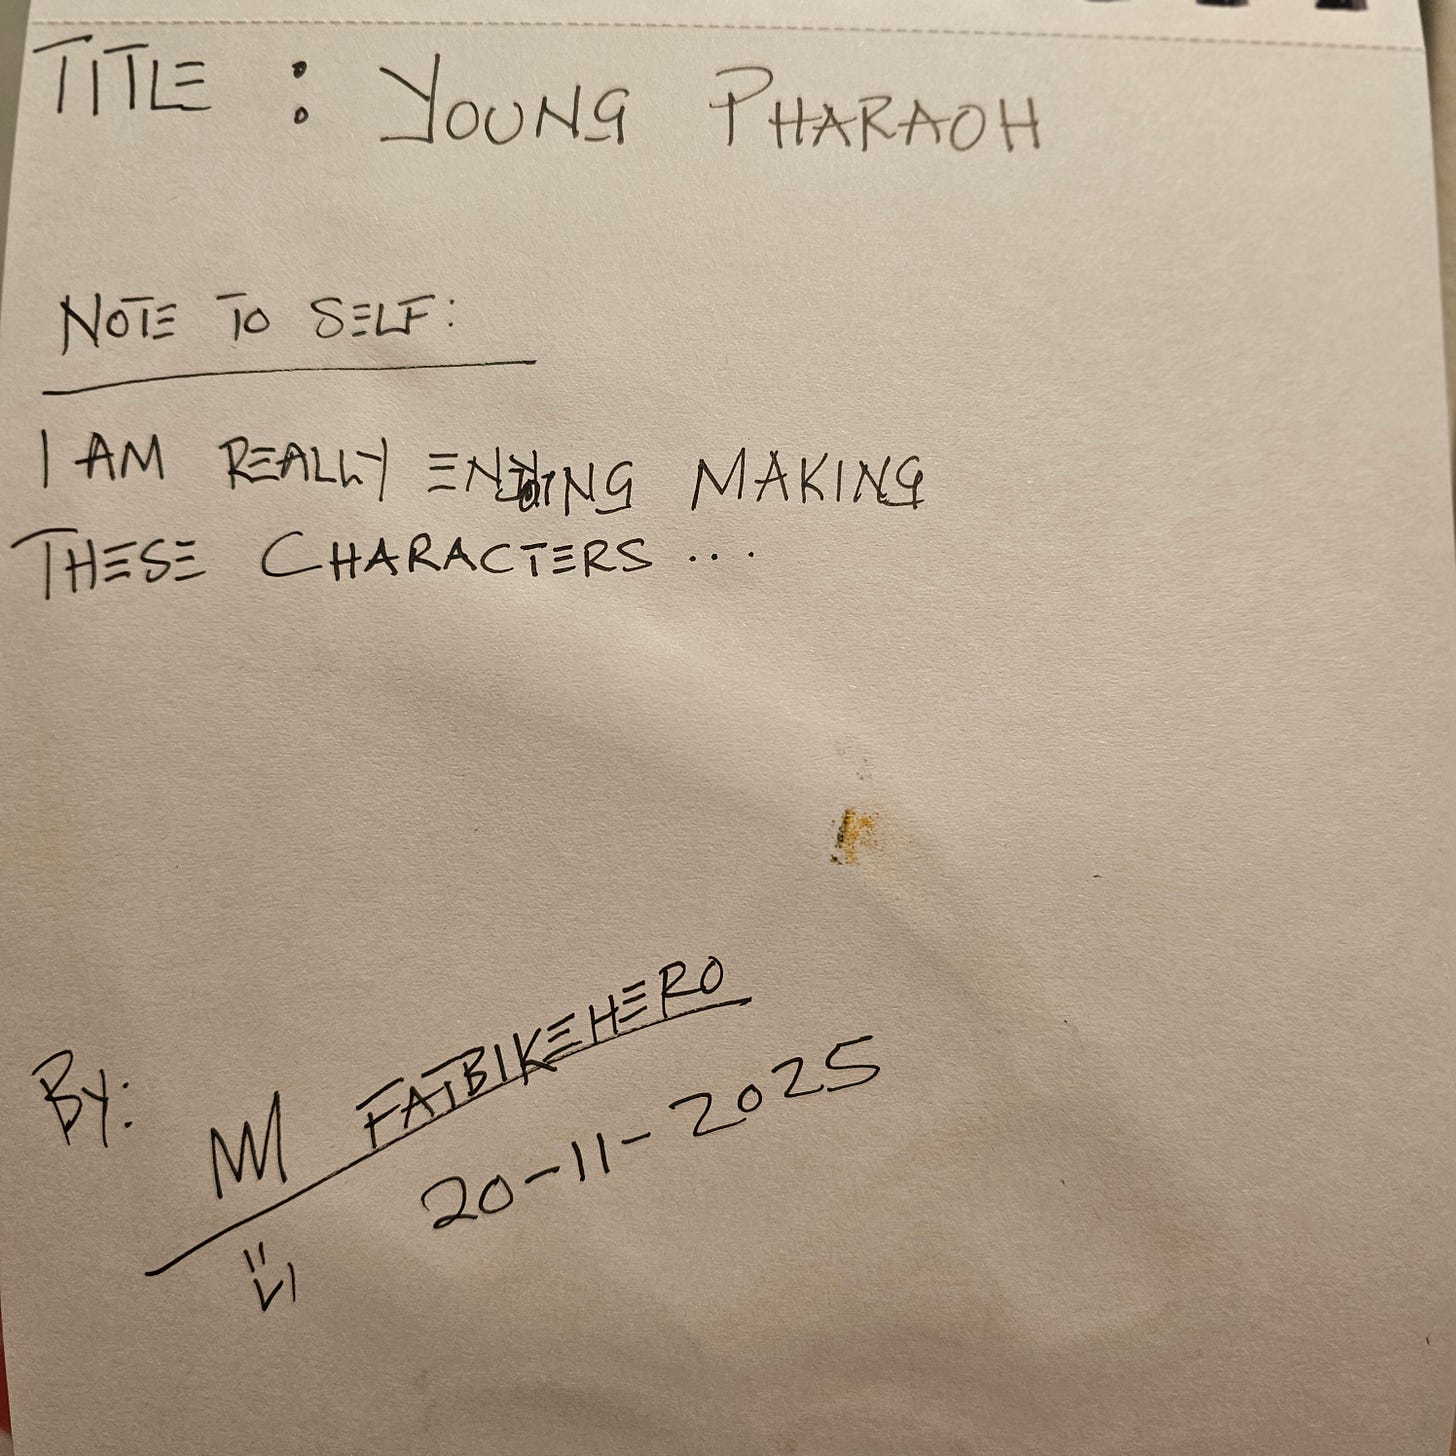 TITLE : YOUNG PHARAOH
NOTE TO SELF:
I AM REALLY MAKING
THESE CHARACTERS ...
By: FATBIKEHERO
20-11-2025